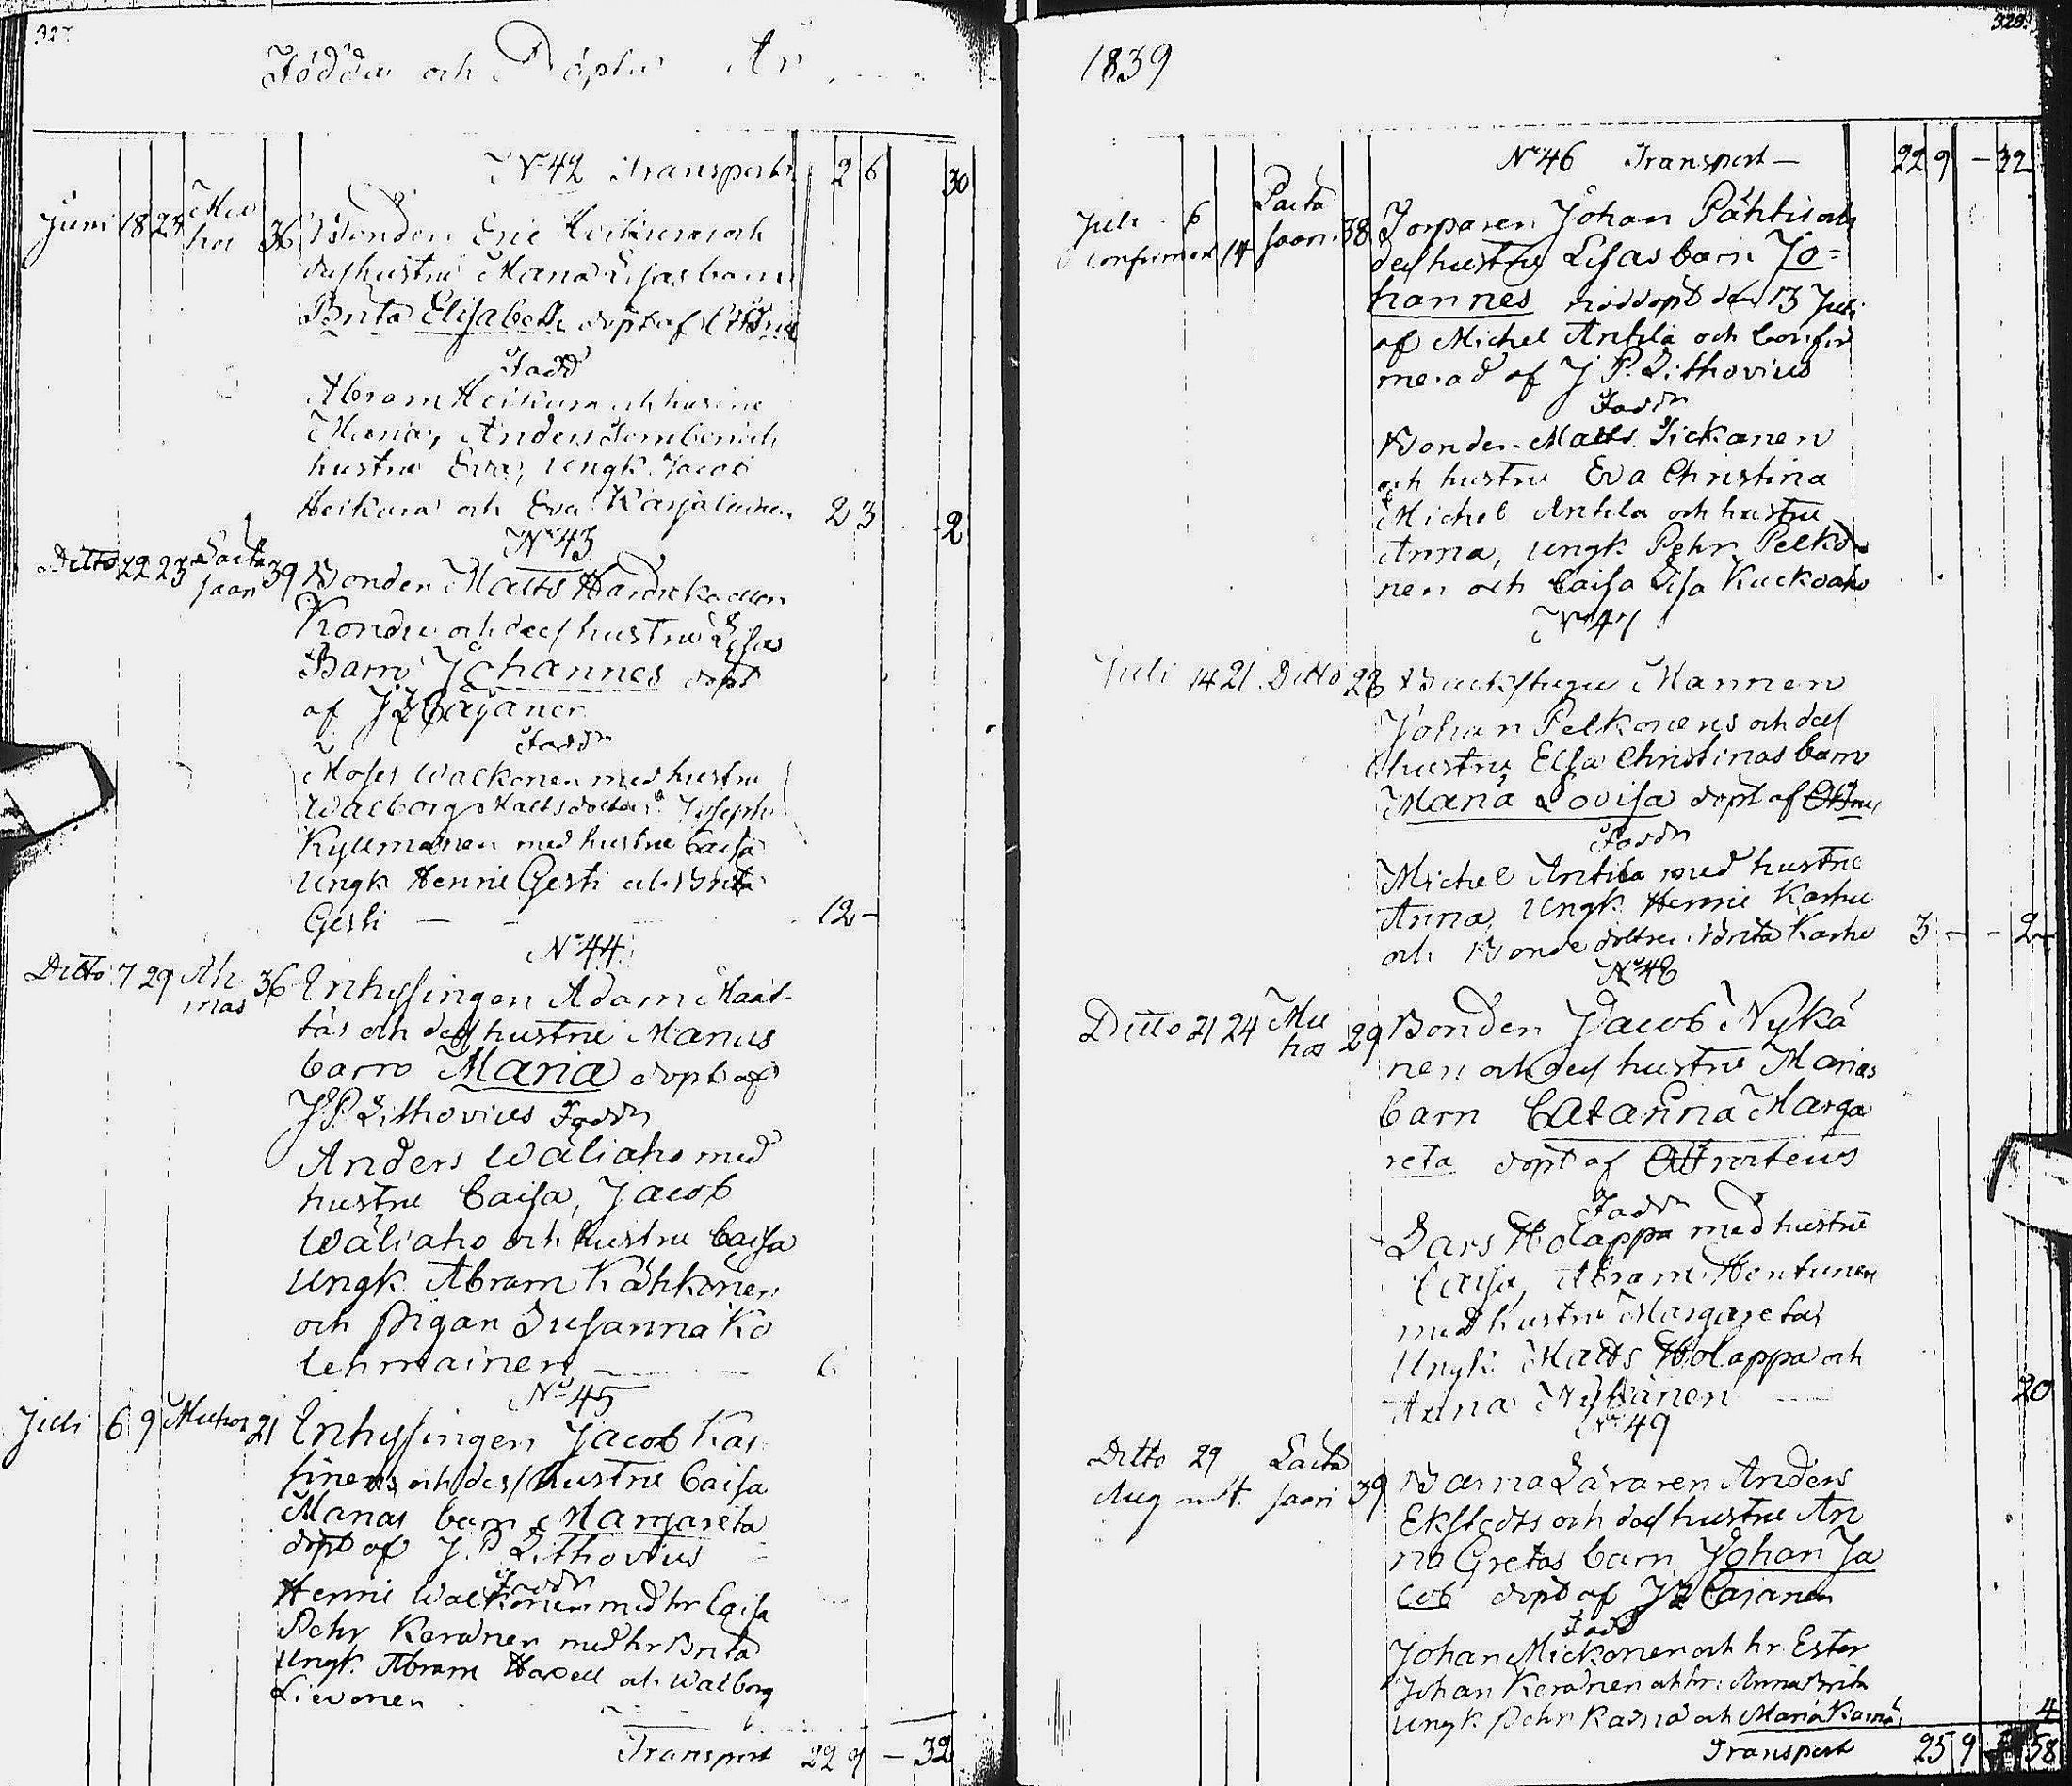 327
Födda och Döpta År
N:o 42 Transport 2 6 30
Juni 18 24 Mu
hos 36 Bonden Eric Heikuras och
dess hustru Marias Lisas barn
Brita Elisabeth döpt af
Fadd
Abram Heikura och hustru
Maria, Anders och
hustru Eva, Ungk. Jacob
Heikura och Eva Karjalainen 2 3 2
N:o 43
Ditto 22 23 Säräis
jaani 39 Bonden Matts Hardikka
och dess hustru Lisas
Barn Johannes döpt
af J Z Cajaner
Faddr
Moses Walkonen med hustru
Walborg Mattsdotter Joseph
Kyllmänen med hustru Caisa
Ungk Henric Gesti och Brita
Gesti 12 –
N:o 44
Ditto 7 29 Ah
mas 36 Inhysingen Adam Määt-
täs och dess hustru Marias
barn Maria döpt af
J P Lithovius Faddr
Anders Wäliaho med
hustru Caisa, Jacob
Wäliaho och hustru Caisa
Ungk. Abram Kähkönen
och Pigan Susanna Ko
lehmainen 6
N:o 45
Juli 6 9 Muhos 21 Inhysingen Jacob Kar
sinens och dess hustru Caisa
Marias barn Margareta
döpt af J. P Lithovius
Faddr
Henric Walkonen med hr Caisa
Pehr Keränen med hr Brita
Ungk. Abram och Walborg
Lievonen
Transport 22 9 – 32
328
1839
N:o 46 Transport – 22 9 – 32
Juli 6
confirmat 14 jaani 38 Torparen Johan Pähtis och
dess hustru Lisas barn Jo=
hannes nöddöpt den 13 Juli
af Michel Anttila och Confir
merad af J. P. Lithovius
Faddr
Bonden Matts Tickanen
och hustru Eva Christina
Michel Anttila och hustru
Anna, Ungk. Pehr Pelko
nen och Caisa Lisa
N:o 47
Juli 14 21 Ditto 28 Backstugu Mannen
Johan Pelkonens och dess
hustru Elsa Christinas barn
Maria Lovisa döpt af
Faddr
Michel Anttila med hustru
Anna, Ungk. Henric Karhu
och Bonde dottren Brita Karhu 3 – – 2
N:o 48
Ditto 21 24 Mu
hos 29 Bonden Jacob Nykä
nen och dess hustru Marias
barn Catarina Marga
reta döpt af Frosterus
Faddr
Lars Holappa med hustru
Caisa, Abram Hentunen
med hustru Margareta
Ungk. Matts Holappa och
Anna Nykänen 20
N:o 49
Ditto 29
Aug 4 jaani 39 Barna Läraren Anders
Ekstedts och dess hustru An
na Gretas barn Johan Ja
cob döpt af J Z Cajanen
Fadd
Johan Mickonen och hr Ester
Johan Keränen och hr: Anna Brita
Ungk. Pehr och Maria 4
Transport 25 9 58